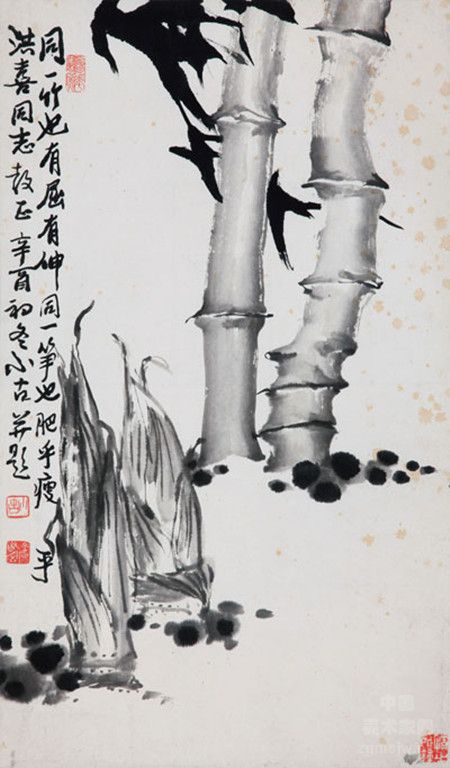 同一竹也有屈有伸同一笋也肥乎瘦乎
洪喜同志教正辛酉初冬小古并题
中国
美术家网